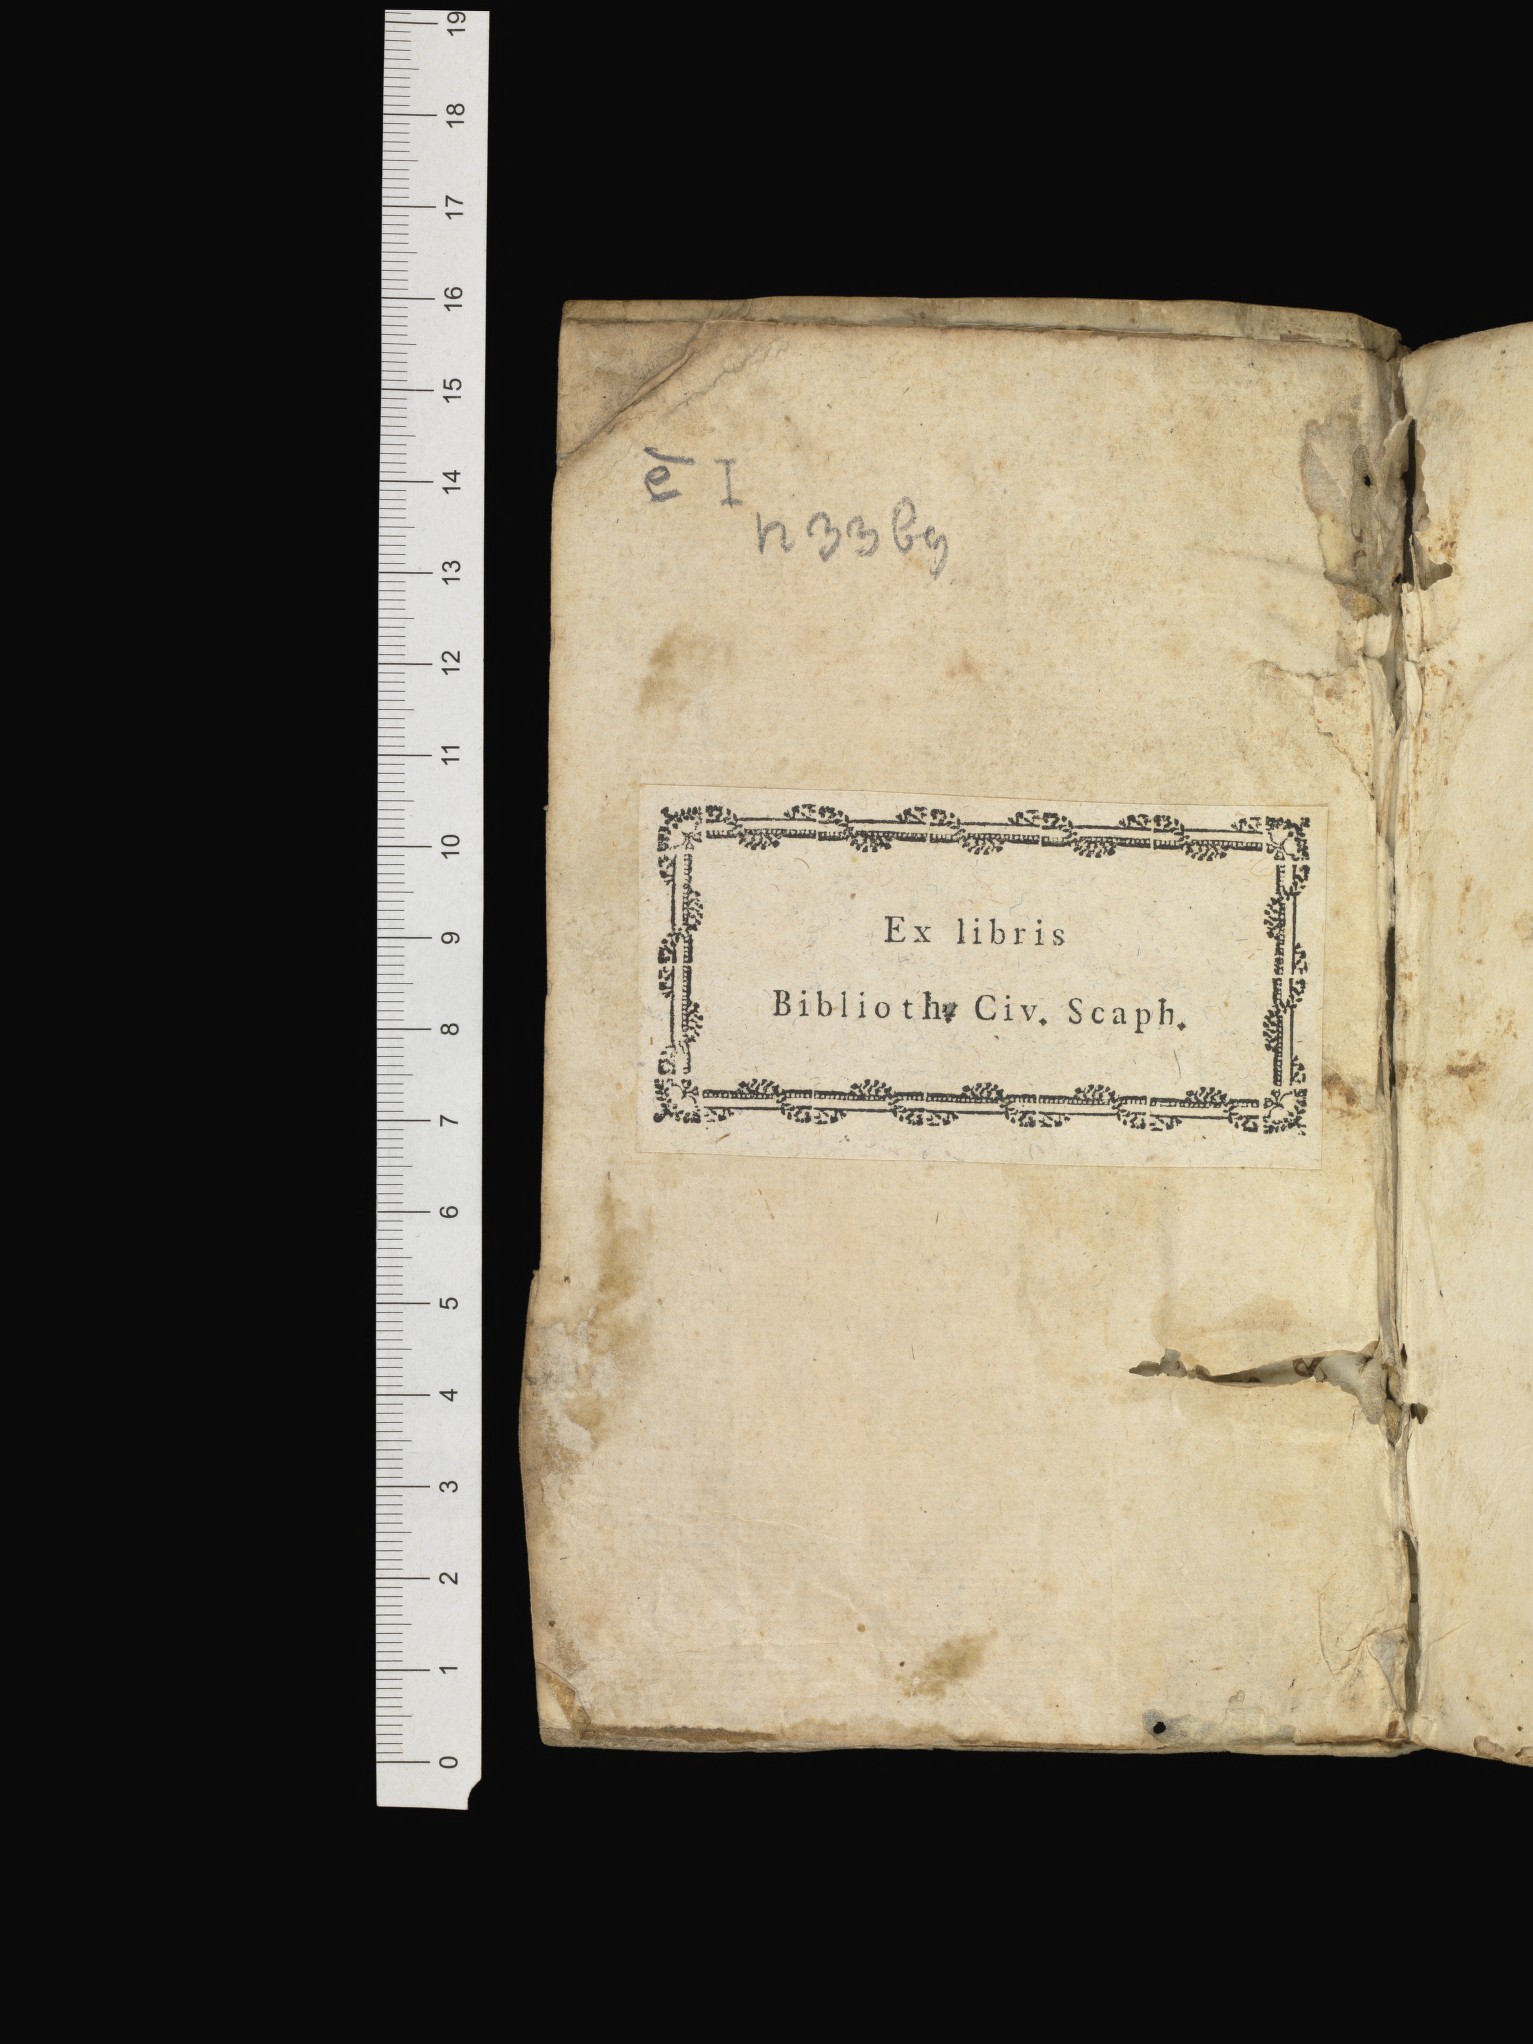 I
Ex libris
Biblioth. Civ. Scaph.
19
18
17
16
15
14
13
12
11
10
9
8
7
6
5
4
3
2
1
0